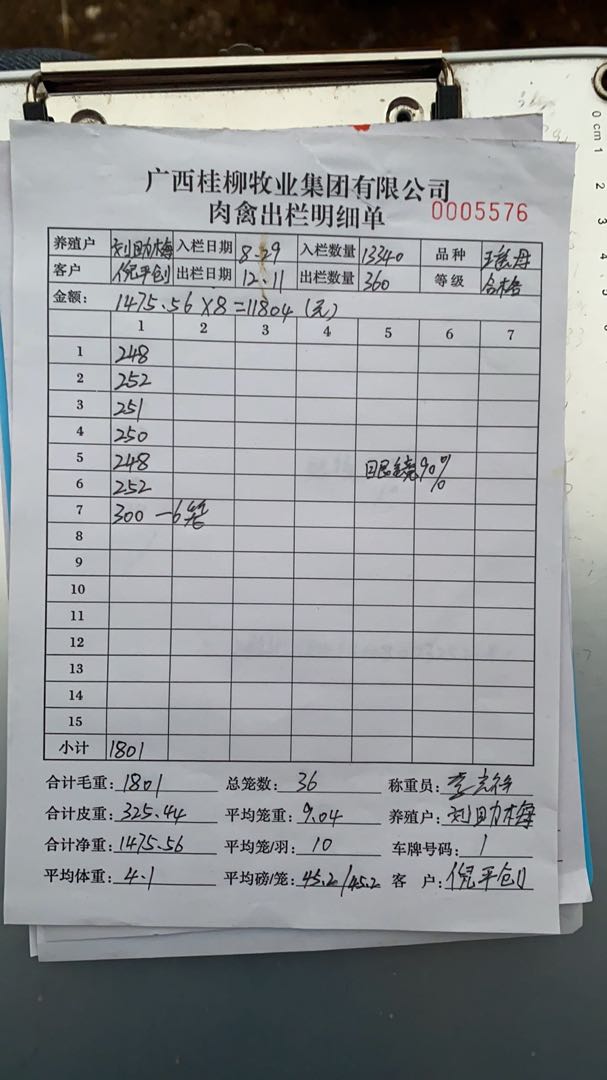 广西桂柳牧业集团有限公司
肉禽出栏明细单 0005576
养殖户 刘助梅 入栏日期 8.29 入栏数量 13340 品种
客户 倪平创 出栏日期 12.11 出栏数量 360 等级 合格
金额: 1475.56×8=11804(元)
1 2 3 4 5 6 7
1 248
2 252
3 251
4 250
5 248 90%
6 252
7 300 -6笼
8
9
10
11
12
13
14
15
小计 1801
合计毛重: 1801 总笼数: 36 称重员:
合计皮重: 325.44 平均笼重: 9.04 养殖户: 刘助梅
合计净重: 1475.56 平均笼/羽: 10 车牌号码: 1
平均体重: 4.1 平均磅/笼: 45.2/45.2 客 户: 倪平创
0 cm 1 2 3 4 5 6 7 8